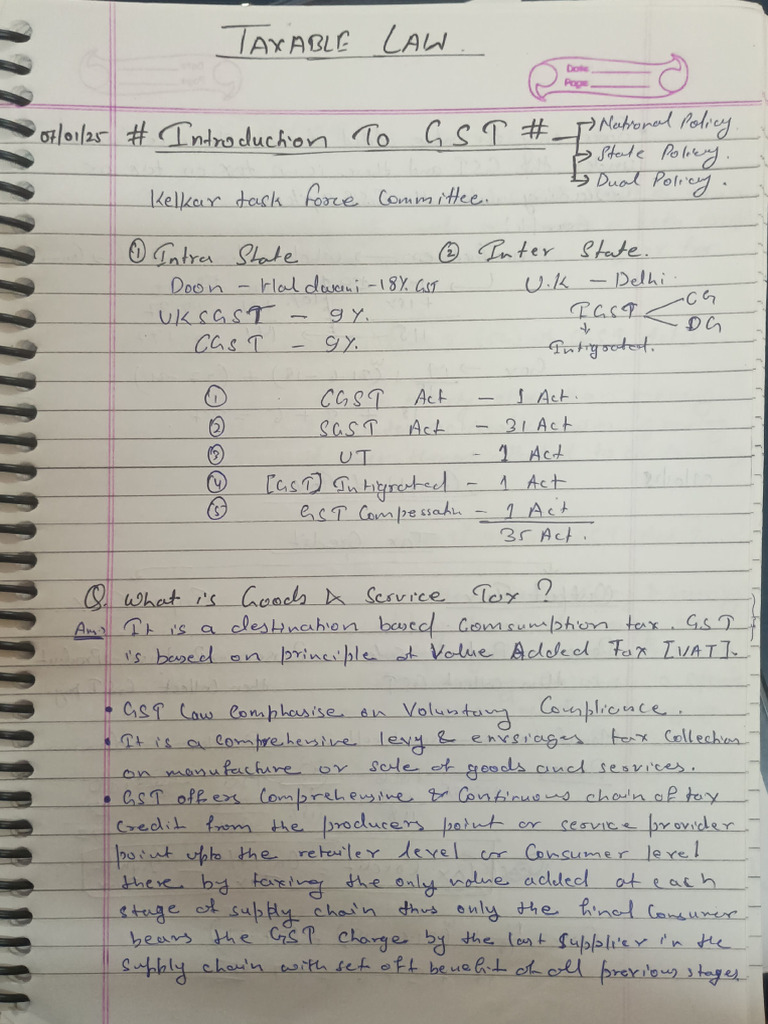 TAXABLE LAW
Date
Page
07/01/25 # Introduction To GST # → National Policy
→ State Policy.
→ Dual Policy.
Kelkar task force Committee.
① Intra State ② Inter State.
Doon - Haldwani - 18% GST U.K - Delhi
UKSGST - 9%. IGST CG
CGST - 9%. DG
Intigrated.
① CGST Act - 1 Act.
② SGST Act - 31 Act
③ UT - 1 Act
④ [GST] Intigrated - 1 Act
⑤ GST Compessatn - 1 Act
35 Act.
Q. What is Goods & Service Tax ?
Ans:- It is a destination based Comsumption tax. GST
is based on principle of Value Added Tax [VAT].
• GST Law emphasise on Voluntary Compliance.
• It is a comprehensive levy & envsiages tax Collection
on manufacture or sale of goods and services.
• GST offers Comprehensive & Continuous chain of tax
credit from the producers point or service provider
point upto the retailer level or Consumer level
there by taxing the only value added at each
stage of supply chain thus only the final Consumer
bears the GST Charge by the last Supplier in the
Supply chain with set off benefit of all previous stages.